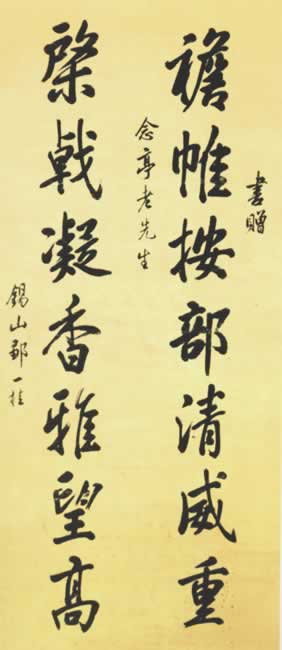 書贈
襜帷按部清威重
念亭老先生
棨戟凝香雅望高
錫山鄒一桂